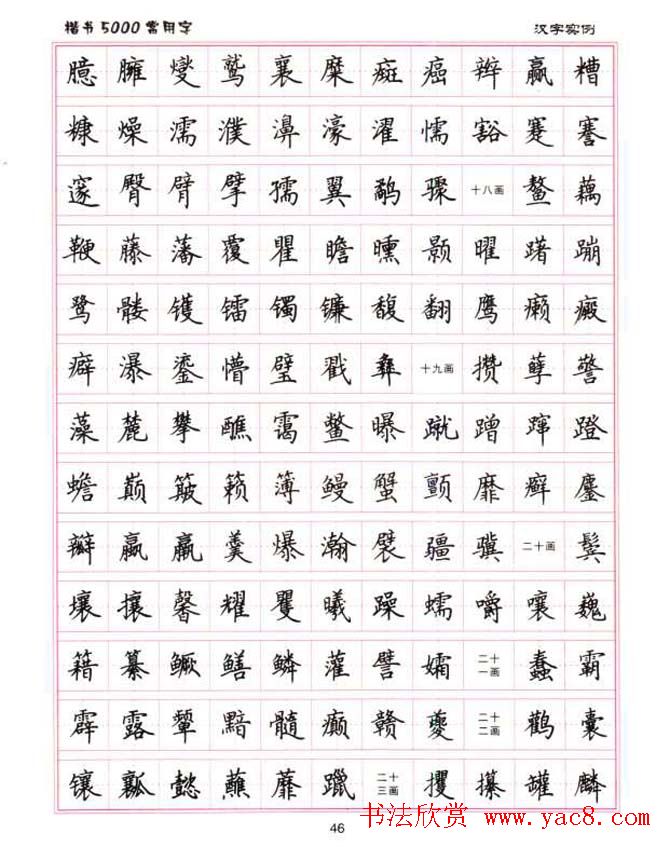 楷书5000常用字 汉字实例
臆 臃 燮 鹫 襄 糜 癍 癌 辫 赢 糟
糠 燥 濡 濮 濞 濠 濯 懦 豁 蹇 謇
邃 臀 臂 擘 孺 翼 鹬 骤 十八画 鳌 藕
鞭 藤 藩 覆 瞿 瞻 曛 颢 曜 躇 蹦
鹭 髅 镬 镭 镯 镰 馥 翻 鹰 癞 癜
癖 瀑 鎏 懵 璧 戳 彝 十九画 攒 孽 警
藻 麓 攀 醮 霭 鳖 曝 蹴 蹭 蹿 蹬
蟾 巅 簸 籁 簿 鳗 蟹 颤 靡 癣 鏖
瓣 蠃 羸 羹 爆 瀚 襞 疆 骥 二十画 鬓
壤 攘 馨 耀 矍 曦 躁 蠕 嚼 嚷 巍
籍 纂 鳜 鳝 鳞 灌 譬 孀 二十一画 蠢 霸
霹 露 颦 黯 髓 癫 赣 夔 二十二画 鹳 囊
镶 瓤 懿 蘸 蘼 躐 二十三画 攫 攥 罐 麟
46
书法欣赏 www.yac8.com